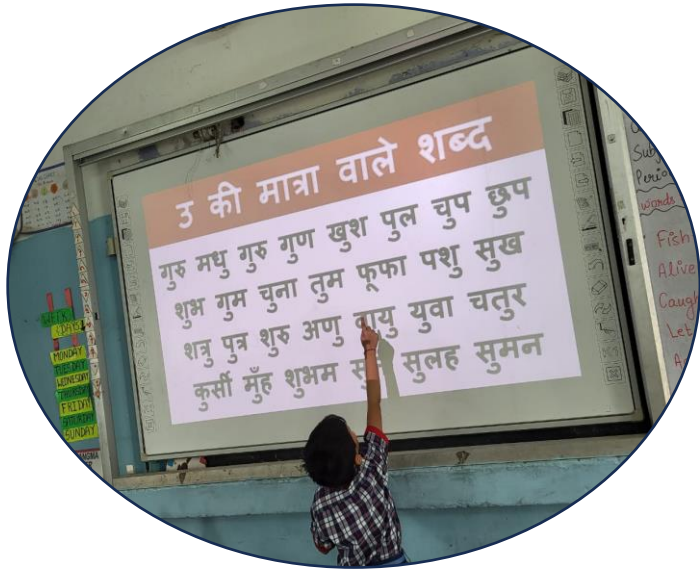 उ की मात्रा वाले शब्द
गुरु मधु गुरु गुण खुश पुल चुप छुप
शुभ गुम चुना तुम फूफा पशु सुख
शत्रु पुत्र शुरु अणु वायु युवा चतुर
कुर्सी मुँह शुभम सुलह सुमन
WEEK
DAYS
MONDAY
TUESDAY
WEDNESDAY
THURSDAY
FRIDAY
SATURDAY
SUNDAY
words
Fish
Alive